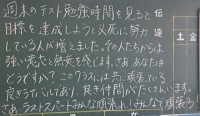 週末のテスト勉強時間を見ると
目標を達成しようと必死に努力
している人が増えました。その人たちからは
強い意志と熱意を感じます。さあ、あなたは
どうですか?このクラスには共に頑張っている
良きライバルであり、良き仲間がたくさんいます。
さあ、ラストスパートみんな頑張れ!みんなで頑張ろう!
伝達
土 金